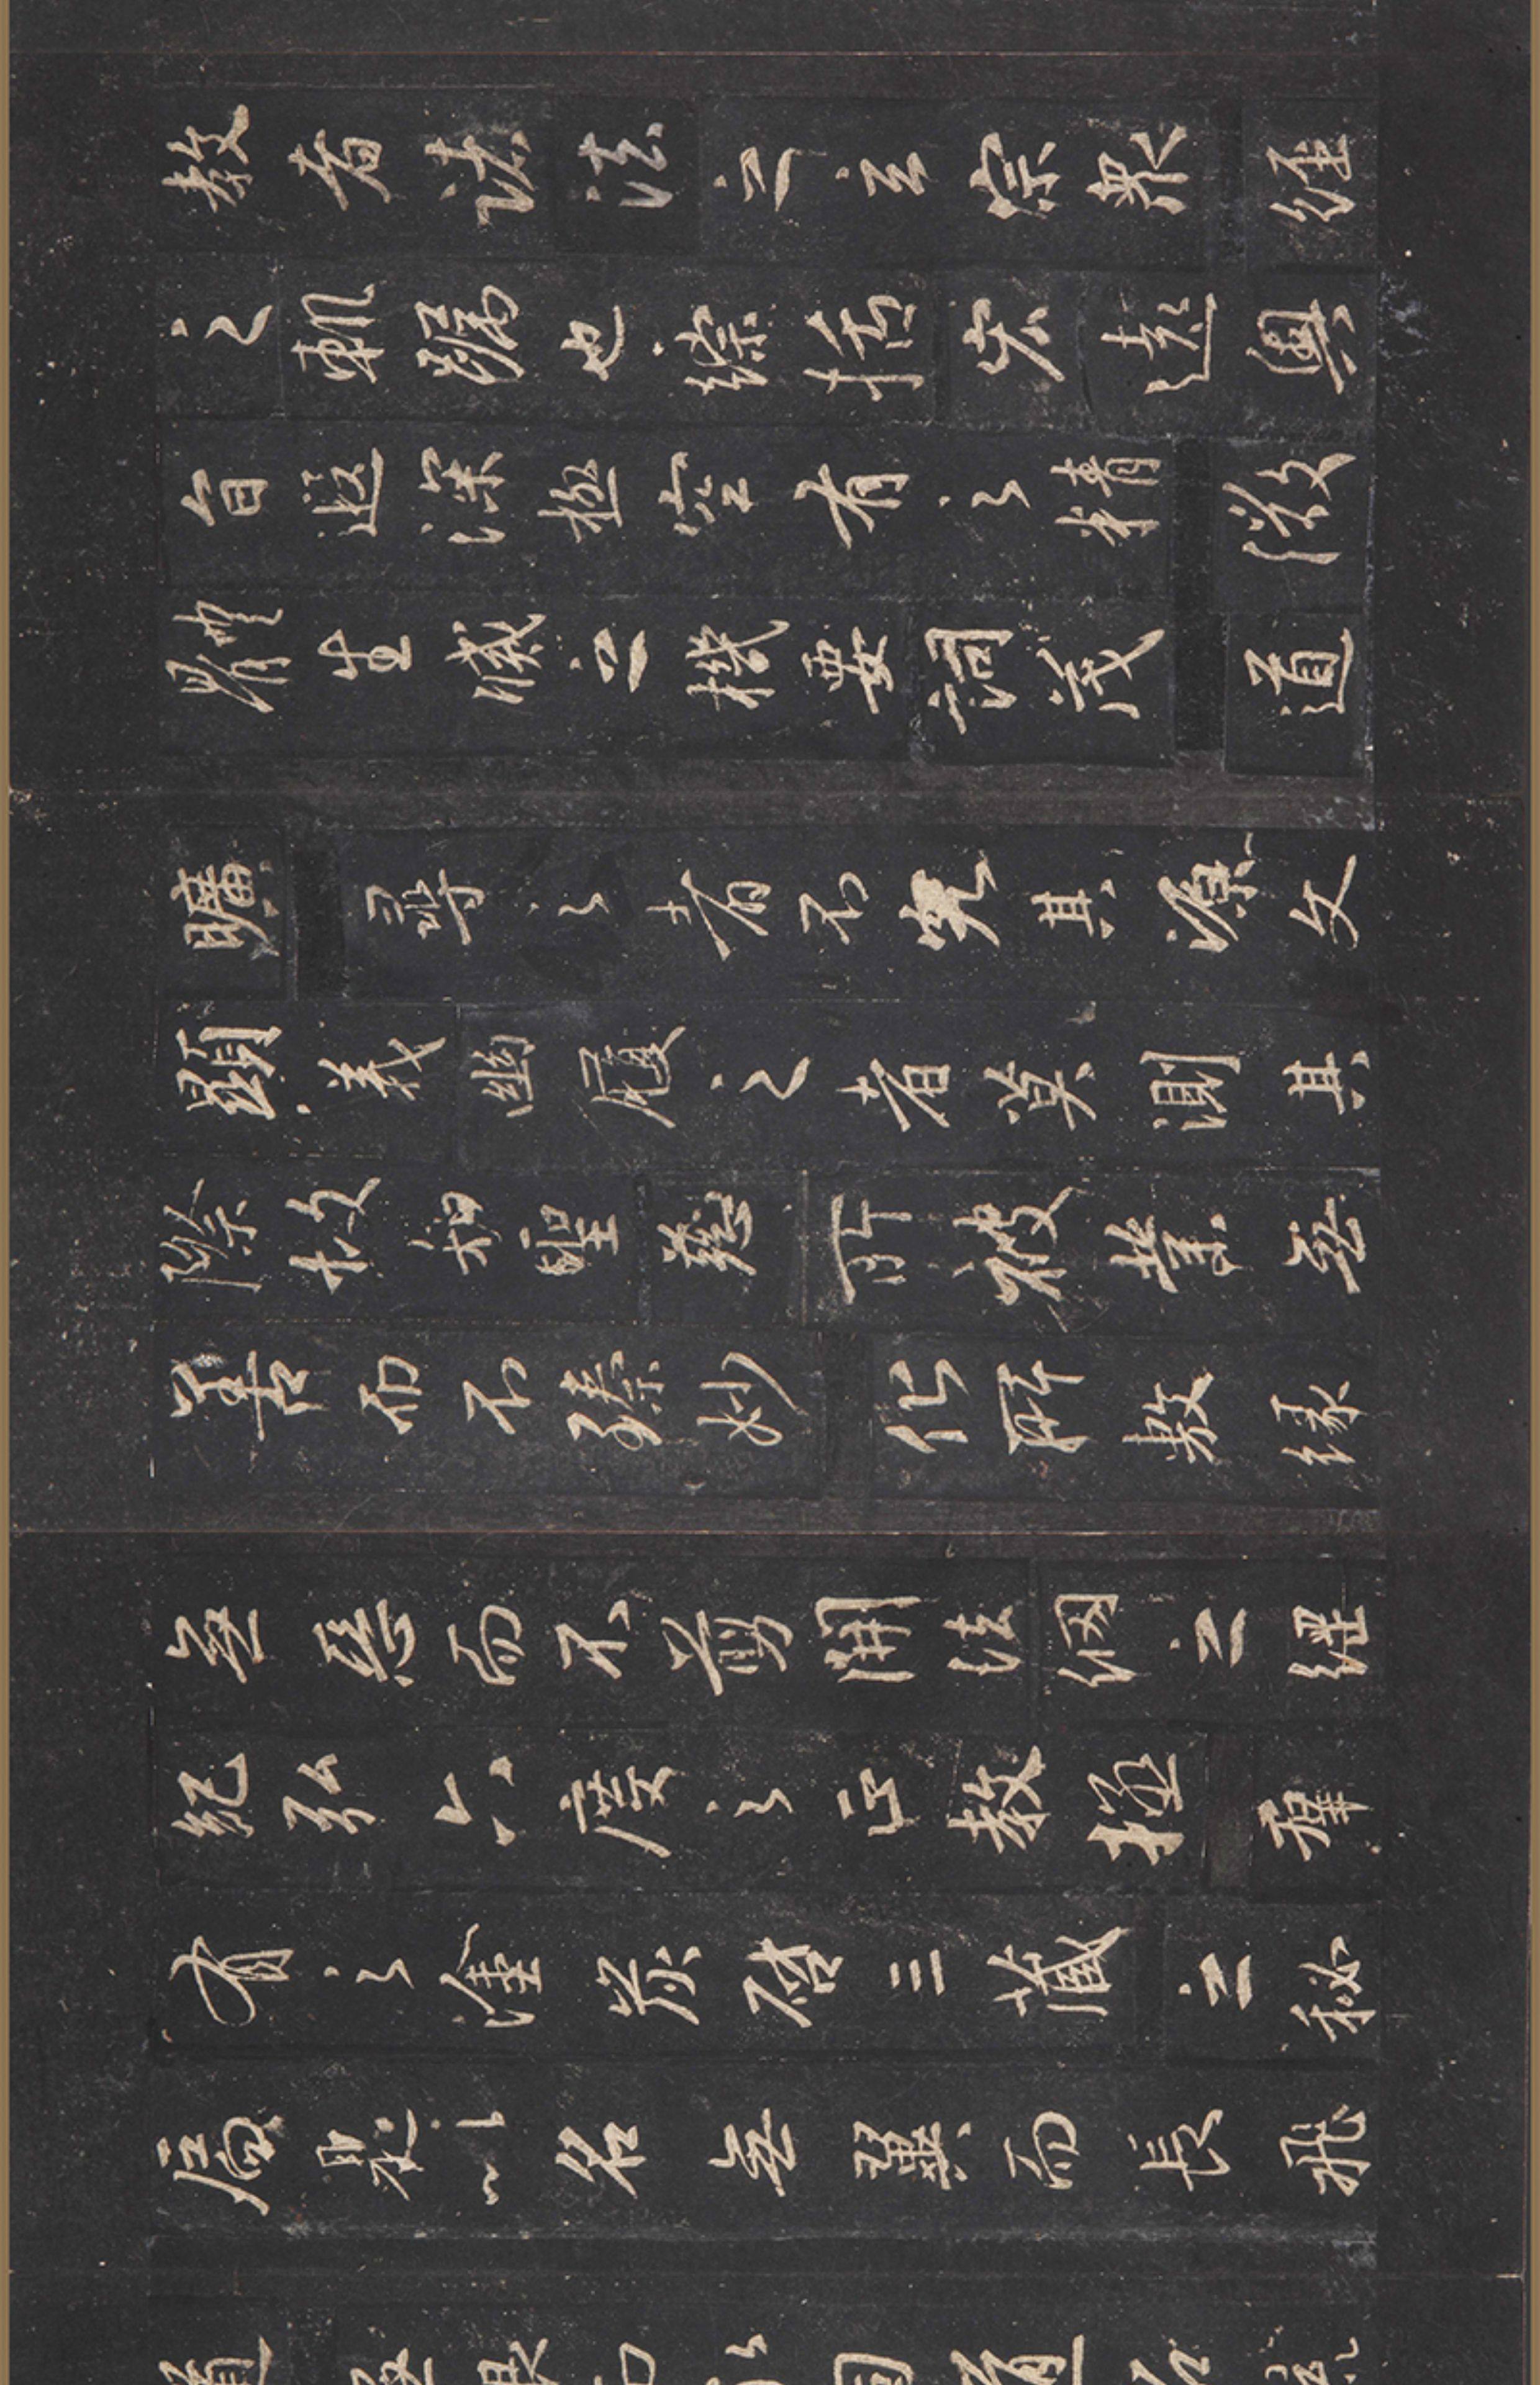 教者諸法之玄宗衆經
之軌躅也綜括宏遠奧
旨遐深極空有之精微
體生滅之機要詞茂道
曠尋之者不究其源文
顯義幽履之者莫測其
際故知聖慈所被業無
善而不臻妙化所敷緣
無惡而不剪開法網之綱
紀弘六度之正教拯群
有之塗炭啓三藏之秘
扃是以名無翼而長飛